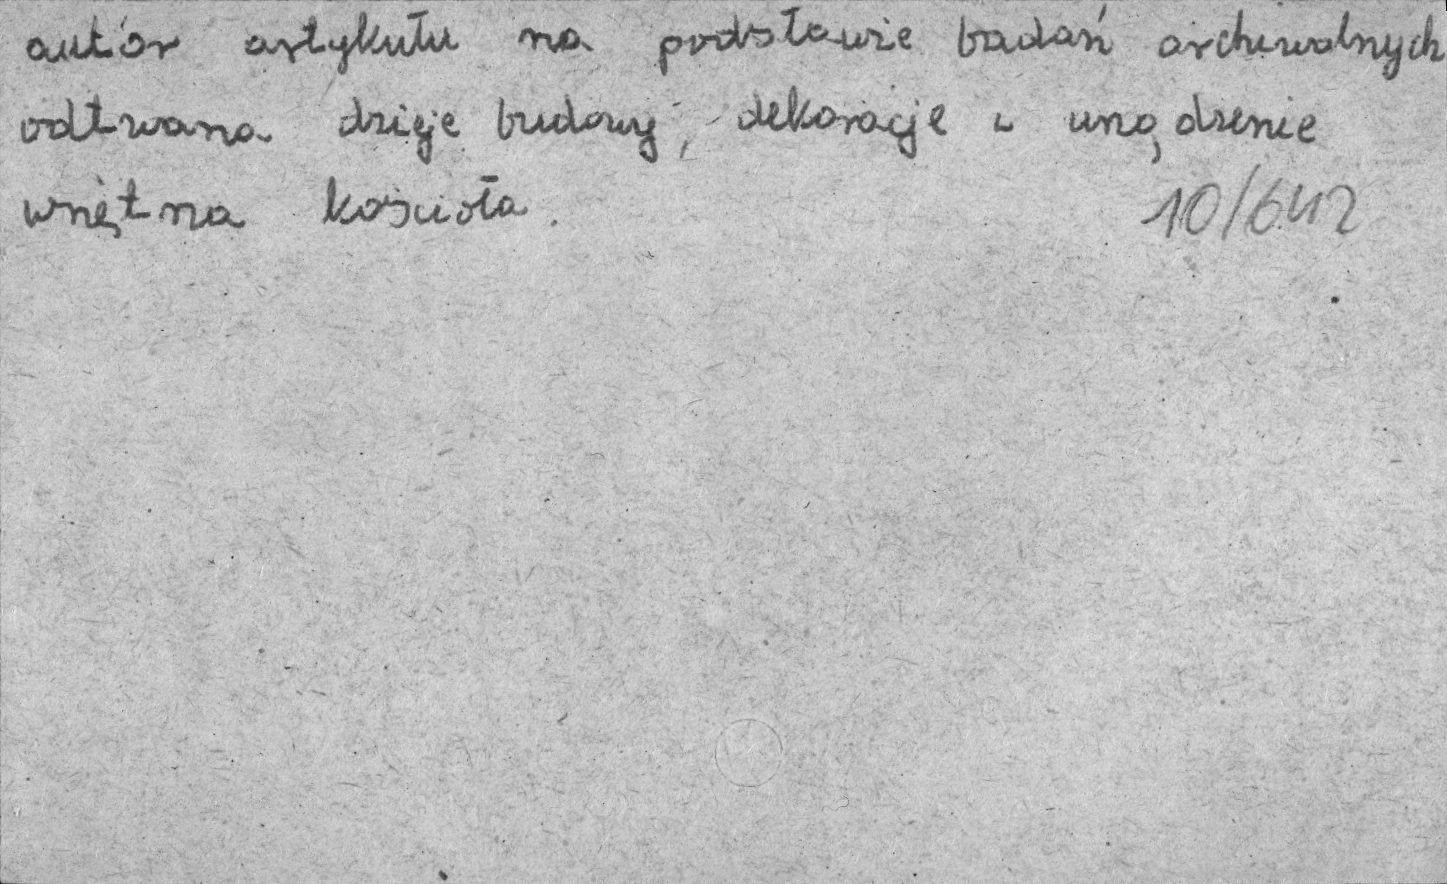 autor artykułu na podstawie badań archiwalnych
odtwarza dzieje budowy, dekoracje i urządzenie
wnętrza kościoła.
10/642